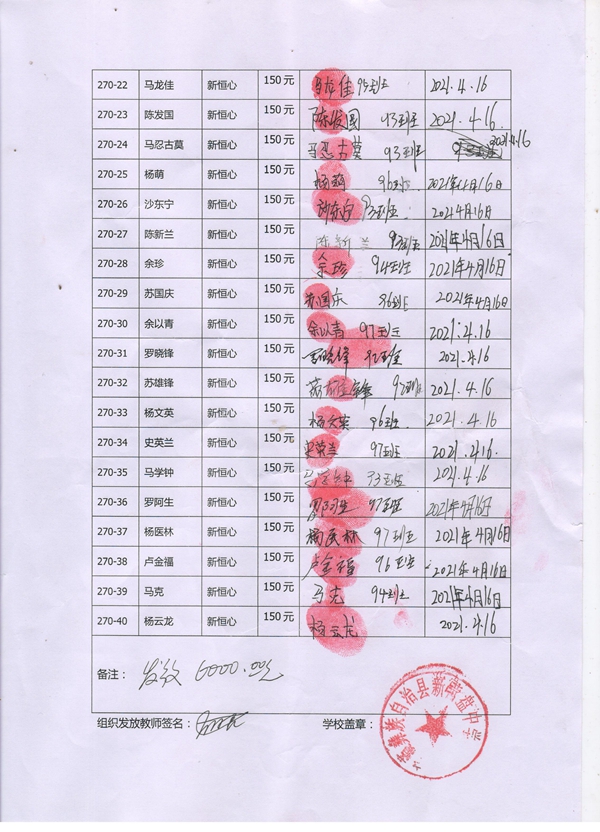 270-22 马龙佳 新恒心 150元 马龙佳 95班 2021.4.16
270-23 陈发国 新恒心 150元 陈发国 93班 2021.4.16
270-24 马忍古莫 新恒心 150元 马忍古莫 93班 2021.4.16
270-25 杨萌 新恒心 150元 杨萌 96班 2021年4月16日
270-26 沙东宁 新恒心 150元 沙东宁 93班 2021年4月16日
270-27 陈新兰 新恒心 150元 陈新兰 2021年4月16日
270-28 余珍 新恒心 150元 余珍 94班 2021年4月16日
270-29 苏国庆 新恒心 150元 苏国庆 96班 2021年4月16日
270-30 余以青 新恒心 150元 余以青 97班 2021.4.16
270-31 罗晓锋 新恒心 150元 罗晓锋 2021.4.16
270-32 苏雄锋 新恒心 150元 2021.4.16
270-33 杨文英 新恒心 150元 杨文英 96班 2021.4.16
270-34 史英兰 新恒心 150元 史英兰 97班 2021.4.16
270-35 马学钟 新恒心 150元 马学钟 93班 2021.4.16
270-36 罗阿生 新恒心 150元 罗阿生 97班 2021年4月16日
270-37 杨医林 新恒心 150元 杨医林 97班 2021年4月16日
270-38 卢金福 新恒心 150元 卢金福 96班 2021年4月16日
270-39 马克 新恒心 150元 马克 94班 2021年4月16日
270-40 杨云龙 新恒心 150元 杨云龙 2021.4.16
备注： 发放6000.00元
组织发放教师签名： 学校盖章：
彝族自治县新营盘中学